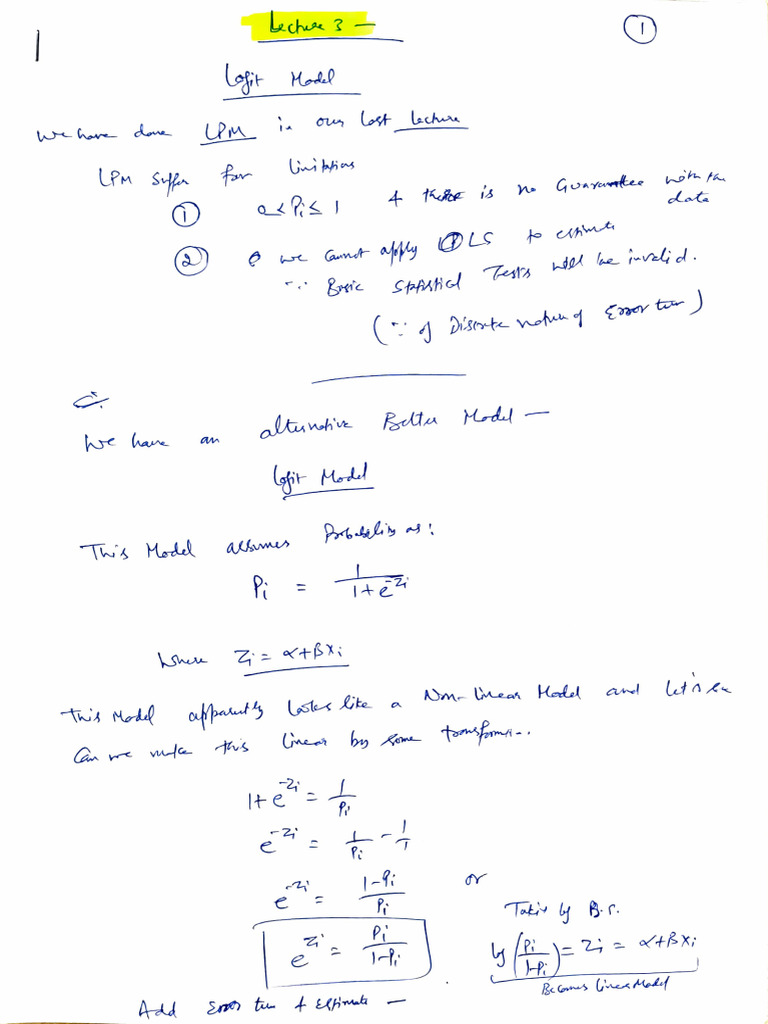 Lecture 3 —
1
Logit Model
We have done LPM in our last lecture
LPM suffer for limitations
① 0 ≤ Pi ≤ 1 & there is no Guarantee with the data
② we cannot apply OLS to estimate
∵ Basic Statistical Tests will be invalid.
(∵ of Discrete nature of Error term)
We have an alternative Better Model —
Logit Model
This Model assumes Probability as:
Pi = 1/(1+e^-Zi)
Where Zi = α+βXi
This Model apparently looks like a Non-linear Model and let's see
Can we make this linear by some transform...
1+e^-Zi = 1/Pi
e^-Zi = 1/Pi - 1/1
e^-Zi = (1-Pi)/Pi or
e^Zi = Pi/(1-Pi)
Taking log B.S.
log(Pi/(1-Pi)) = Zi = α+βXi
Becomes linear Model
Add Error term & Estimate —